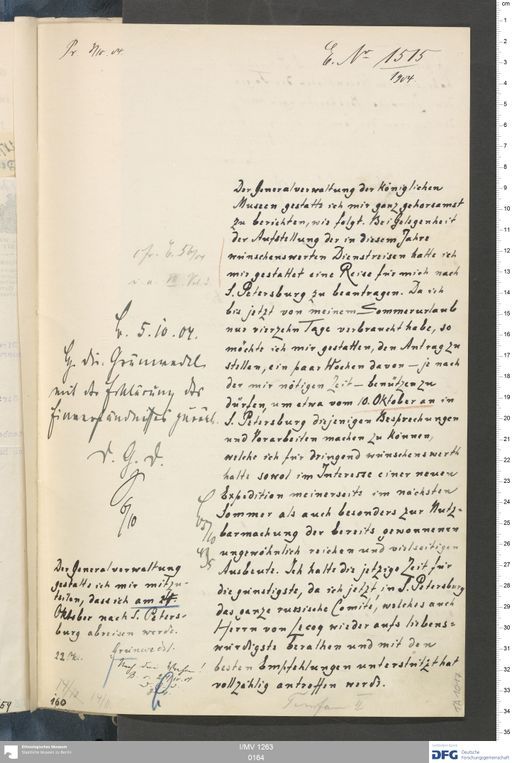 Pr. Nr. 04
E. Nr 1515
1904
Der Generalverwaltung der königlichen
Museen gestatte ich mir ganz gehorsamst
zu berichten, wie folgt. Bei Gelegenheit
der Aufstellung der in diesem Jahre
wünschenswerten Dienstreisen hatte ich
mir gestattet eine Reise für mich nach
S. Petersburg zu beantragen. Da ich
bis jetzt von meinem Sommerurlaub
nur vierzehn Tage verbraucht habe, so
möchte ich mir gestatten, den Antrag zu
stellen, ein paar Wochen davon – je nach
der mir nötigen Zeit – benützen zu
dürfen, um etwa vom 10. Oktober an in
S. Petersburg diejenigen Besprechungen
und Vorarbeiten machen zu können,
welche ich für dringend wünschenswerth
halte sowol im Interesse einer neuen
Expedition meinerseits im nächsten
Sommer als auch besonders zur Nutz-
barmachung der bereits gewonnenen
ungewöhnlich reichen und vielseitigen
Ausbeute. Ich halte die jetzige Zeit für
die günstigste, da ich jetzt in S. Petersburg
das ganze russische Comité, welches auch
Herrn von Lecoq wieder aufs liebens-
würdigste berathen und mit den
besten Empfehlungen unterstützt hat
vollzählig antreffen werde.
cfr. E. 56/04
B. 5.10.04.
H. Dir. Grünwedel
mit der Erklärung des
Einverständnisses zurück.
D. G. D.
6/10
Der Generalverwaltung
gestatte ich mir mitzu-
teilen, dass ich am 24.
Oktober nach S. Peters-
burg abreisen werde.
Grünwedel.
160
I/MV 1263
0164
Ethnologisches Museum
Staatliche Museen zu Berlin
DFG Deutsche
Forschungsgemeinschaft